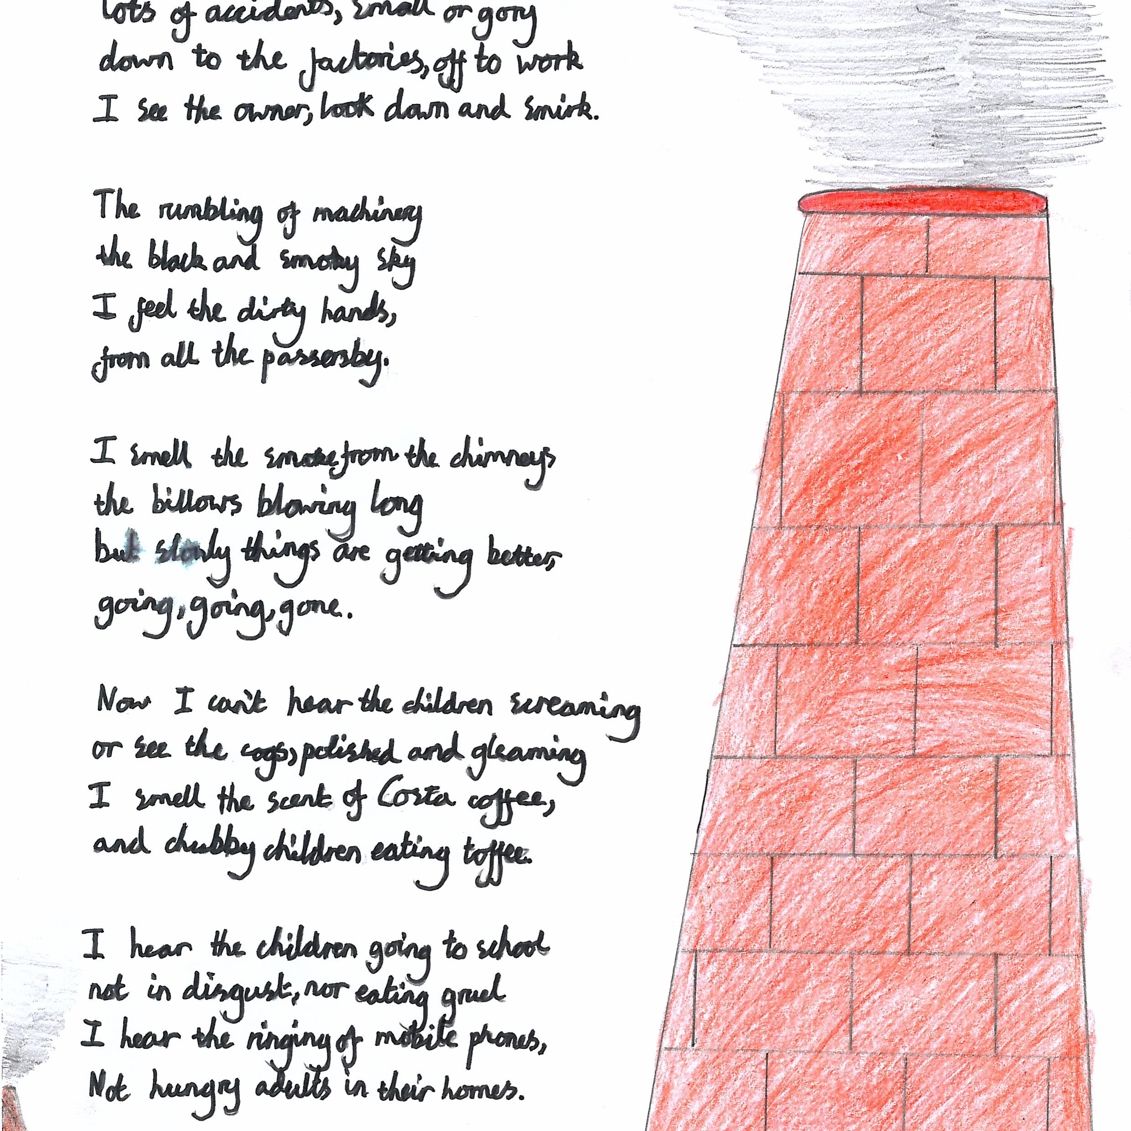 lots of accidents, small or gory
down to the factories, off to work
I see the owner, look down and smirk.
The rumbling of machinery
the black and smoky sky
I feel the dirty hands,
from all the passersby.
I smell the smoke from the chimneys
the billows blowing long
but slowly things are getting better,
going, going, gone.
Now I can't hear the children screaming
or see the cogs, polished and gleaming
I smell the scent of Costa coffee,
and chubby children eating toffee.
I hear the children going to school
not in disgust, nor eating gruel
I hear the ringing of mobile phones,
Not hungry adults in their homes.